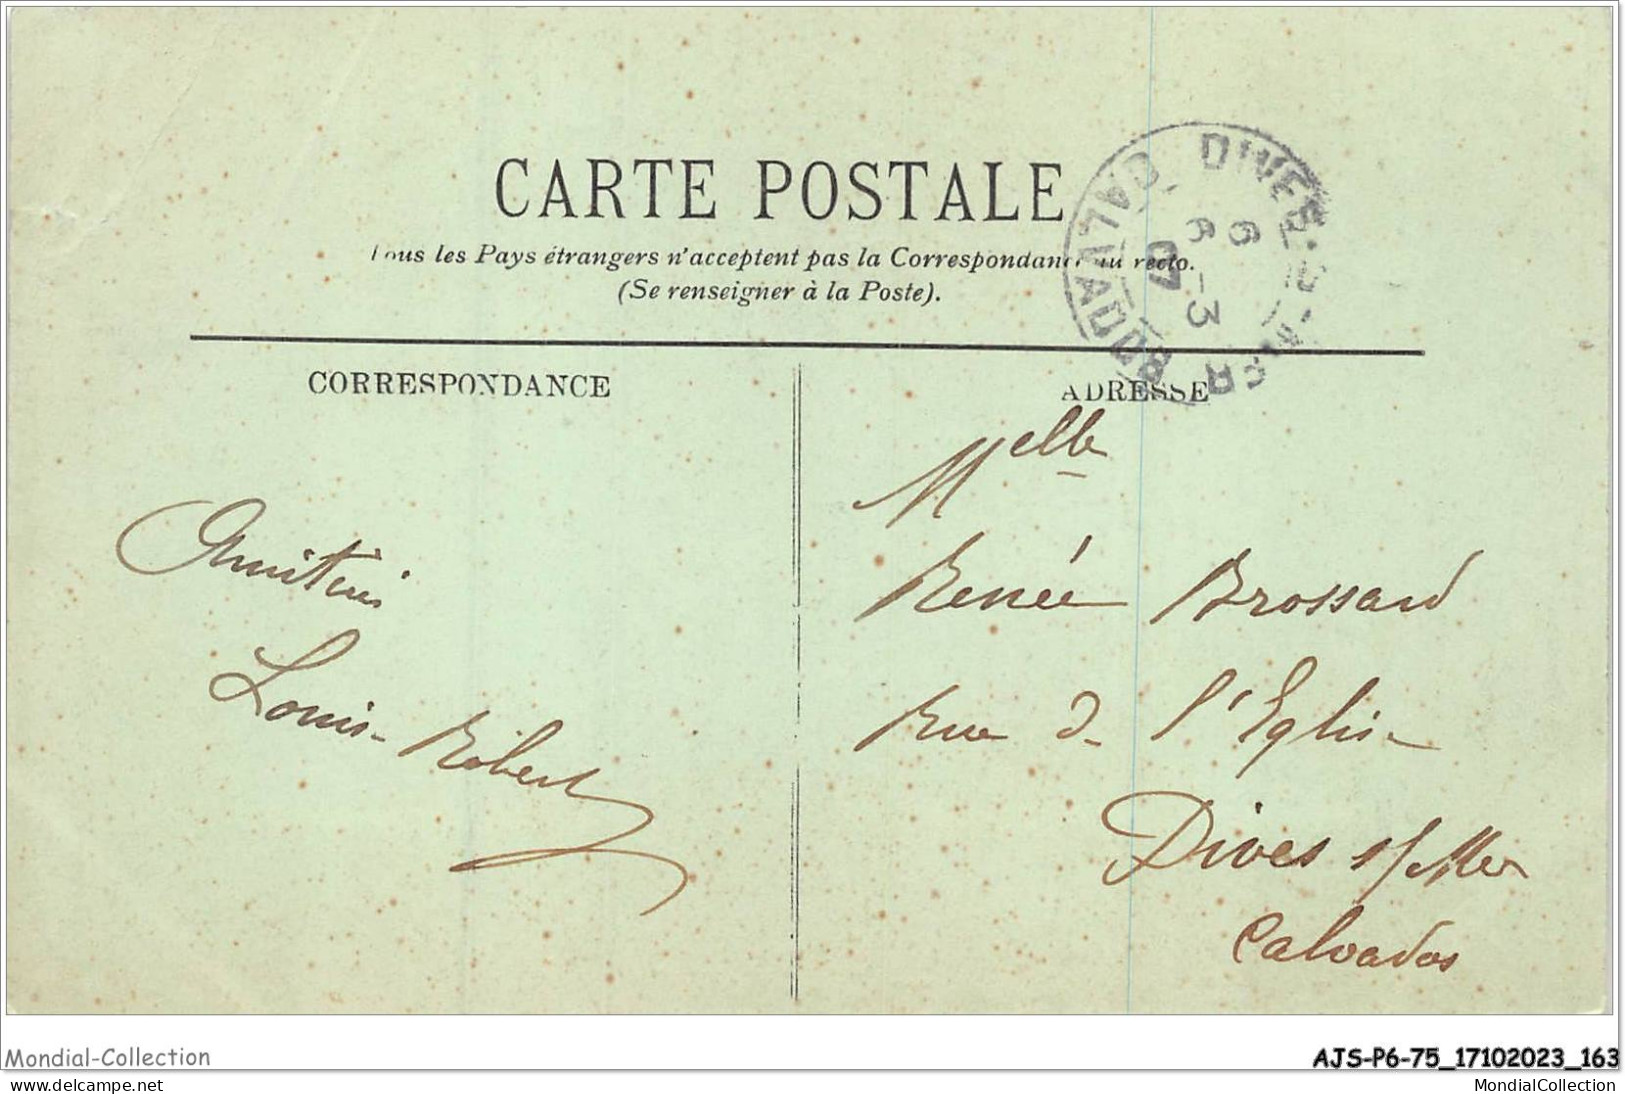 CARTE POSTALE
Tous les Pays étrangers n'acceptent pas la Correspondance au recto.
(Se renseigner à la Poste).
DIVES-S-MER
CALVADOS
6 -3
07
CORRESPONDANCE
ADRESSE
Melle
Renée Brossard
Rue de l'Eglise
Dives s/Mer
Calvados
Amitiés
Louis Robert
Mondial-Collection
AJS-P6-75_17102023_163
www.delcampe.net
MondialCollection